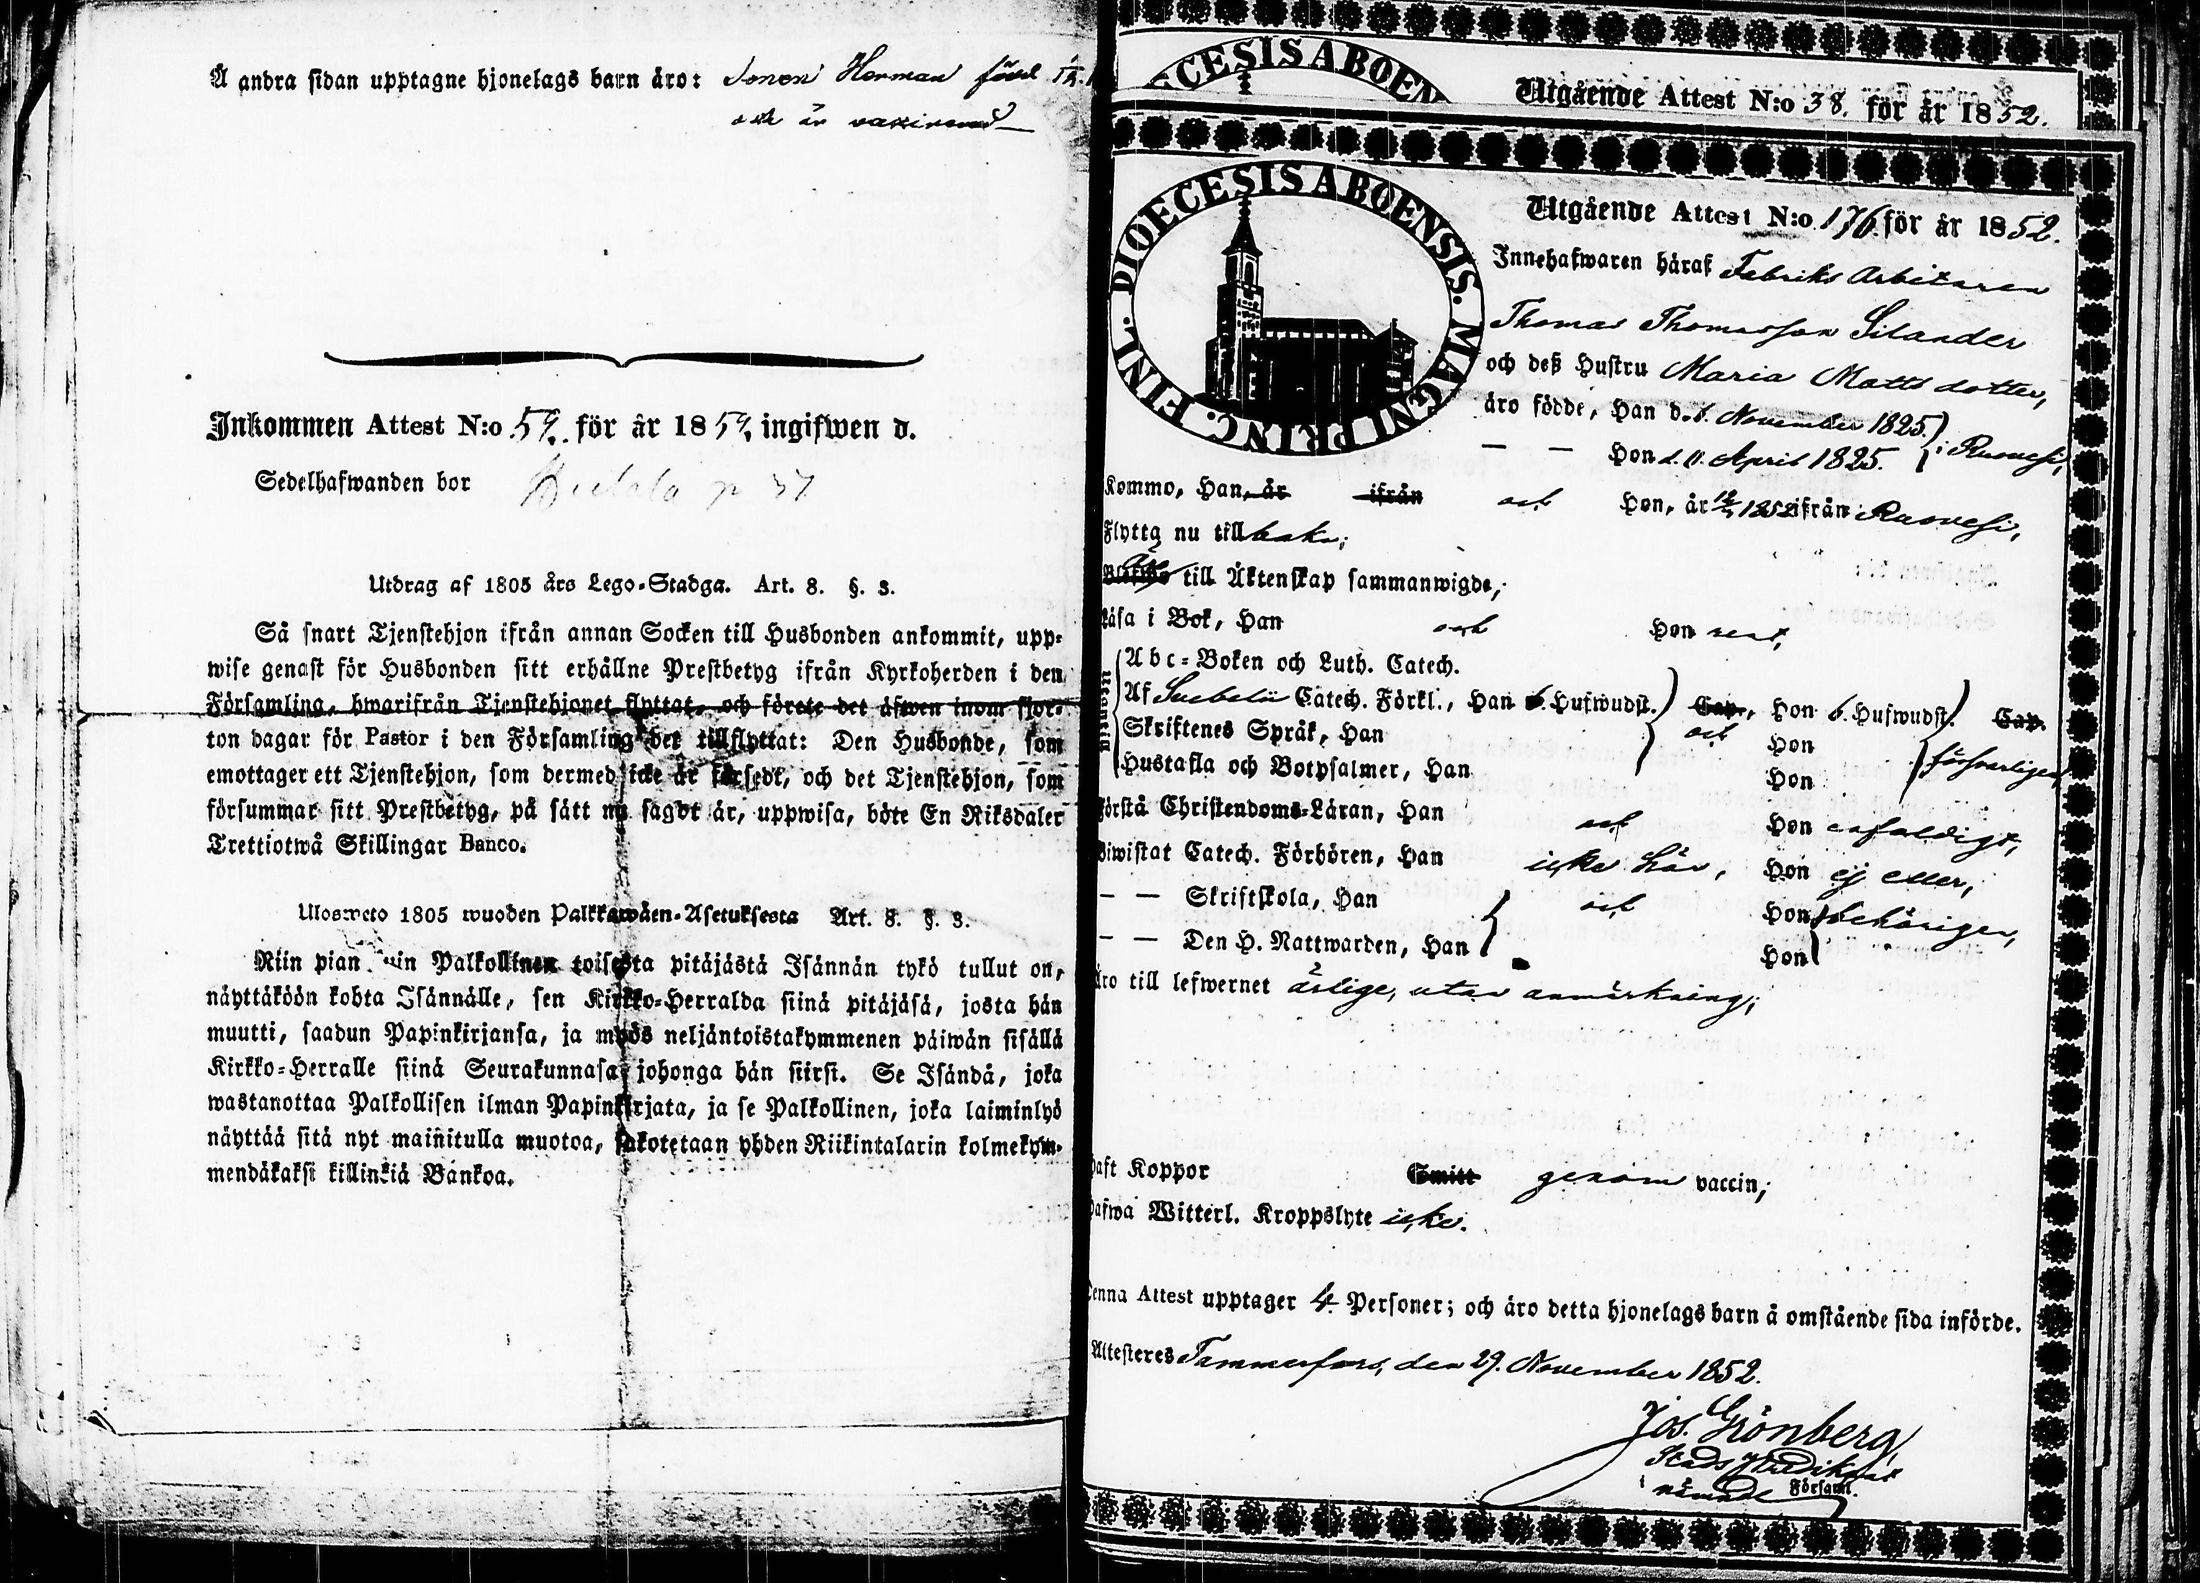 Å andra sidan upptagne hjonelags barn äro: Sonen Herman född
och är vaxinerad
Inkommen Attest N:o 59. för år 1859, ingifwen d.
Sedelhafwanden bor
Utdrag af 1805 års Lego-Stadga. Art. 8. §. 3.
Så snart Tjenstehjon ifrån annan Socken till Husbonden ankommit, upp-
wise genast för Husbonden sitt erhållne Prestbetyg ifrån Kyrkoherden i den
Församling, hwarifrån Tjenstehjonet flyttat, och förete det äfwen inom fjor-
ton dagar för Pastor i den Församling det tillflyttat: Den Husbonde, som
emottager ett Tjenstehjon, som dermed icke är försedt, och det Tjenstehjon, som
försummar sitt Prestbetyg, på sätt nu sagdt är, uppwisa, böte En Riksdaler
Trettiotwå Skillingar Banco.
Ulosweto 1805 wuoden Palkkawäen-Asetuksesta Art. 8. §. 3.
Niin pian kuin Palkollinen toisesta pitäjästä Isännän tykö tullut on,
näyttäköön kohta Isännälle, sen Kirkko-Herralda siinä pitäjäsä, josta hän
muutti, saadun Papinkirjansa, ja myös neljäntoistakymmenen päiwän sisällä
Kirkko-Herralle siinä Seurakunnasa johonga hän siirsi. Se Isändä, joka
wastanottaa Palkollisen ilman Papinkirjata, ja se Palkollinen, joka laiminlyö
näyttää sitä nyt mainitulla muotoa, sakotetaan yhden Riikintalarin kolmekym-
mendäkaksi killinkiä Bankoa.
ECESIS ABOEN
Utgående Attest N:o 38. för år 1852.
DIOECESIS ABOENSIS. MAGNI PRINC. FINL.
Utgående Attest N:o 176 för år 1852.
Innehafwaren häraf Fabriks Arbetaren
Thomas Thomasson Silander
och deß Hustru Maria Mattsdotter,
äro födde, Han d. 1. November 1825.
— — Hon d. 11. April 1825. i Ruovesi,
Kommo, Han, år ifrån och Hon, år 1852 ifrån Ruovesi,
Flytta nu tillbaka;
till Äktenskap sammanwigde,
Läsa i Bok, Han och Hon rent,
Abc-Boken och Luth. Catech.
Af Svebelii Catech. Förkl., Han 6. Hufwudst. Cap., Hon 6. Hufwudst. Cap.
Skriftenes Språk, Han och Hon
Hustafla och Botpsalmer, Han Hon försvarligen,
Förstå Christendoms-Läran, Han och Hon enfaldigt,
Biwistat Catech. Förhören, Han icke här, Hon ej eller,
— — Skriftskola, Han och Hon behörigen,
— — Den H. Nattwarden, Han Hon
Äro till lefwernet ärlige, utan anmärkning;
Haft Koppor Smitt genom vaccin;
Hafwa Witterl. Kroppslyte icke.
Denna Attest upptager 4 Personer; och äro detta hjonelags barn å omstående sida införde.
Attesteres Tammerfors, den 29. November 1852.
Jos. Grönberg
Stads Predikant
i nämnde Församl.